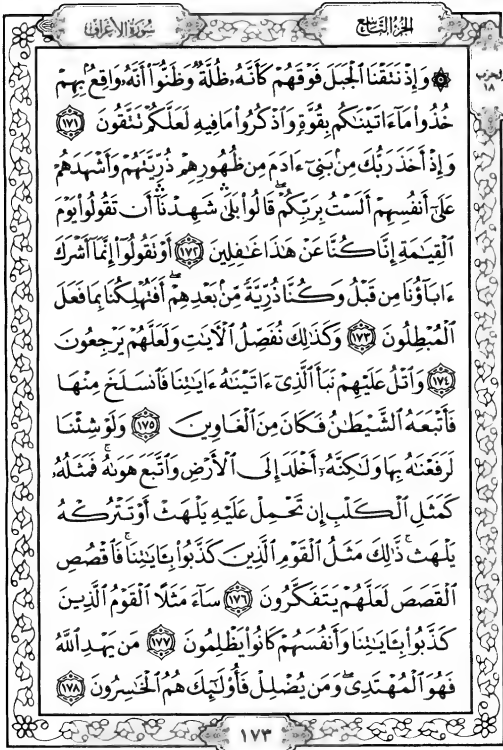 سُورَةُ الأَعْرَافِ
الجُزْءُ التَّاسِعُ
الحزب
١٨
۞ وَإِذْ نَتَقْنَا ٱلْجَبَلَ فَوْقَهُمْ كَأَنَّهُۥ ظُلَّةٌ وَظَنُّوٓا۟ أَنَّهُۥ وَاقِعٌۢ بِهِمْ
خُذُوا۟ مَآ ءَاتَيْنَٰكُم بِقُوَّةٍ وَٱذْكُرُوا۟ مَا فِيهِ لَعَلَّكُمْ تَتَّقُونَ ١٧١
وَإِذْ أَخَذَ رَبُّكَ مِنۢ بَنِىٓ ءَادَمَ مِن ظُهُورِهِمْ ذُرِّيَّتَهُمْ وَأَشْهَدَهُمْ
عَلَىٰٓ أَنفُسِهِمْ أَلَسْتُ بِرَبِّكُمْ ۖ قَالُوا۟ بَلَىٰ ۛ شَهِدْنَآ ۛ أَن تَقُولُوا۟ يَوْمَ
ٱلْقِيَٰمَةِ إِنَّا كُنَّا عَنْ هَٰذَا غَٰفِلِينَ ١٧٢ أَوْ تَقُولُوٓا۟ إِنَّمَآ أَشْرَكَ
ءَابَآؤُنَا مِن قَبْلُ وَكُنَّا ذُرِّيَّةً مِّنۢ بَعْدِهِمْ ۖ أَفَتُهْلِكُنَا بِمَا فَعَلَ
ٱلْمُبْطِلُونَ ١٧٣ وَكَذَٰلِكَ نُفَصِّلُ ٱلْءَايَٰتِ وَلَعَلَّهُمْ يَرْجِعُونَ
١٧٤ وَٱتْلُ عَلَيْهِمْ نَبَأَ ٱلَّذِىٓ ءَاتَيْنَٰهُ ءَايَٰتِنَا فَٱنسَلَخَ مِنْهَا
فَأَتْبَعَهُ ٱلشَّيْطَٰنُ فَكَانَ مِنَ ٱلْغَاوِينَ ١٧٥ وَلَوْ شِئْنَا
لَرَفَعْنَٰهُ بِهَا وَلَٰكِنَّهُۥٓ أَخْلَدَ إِلَى ٱلْأَرْضِ وَٱتَّبَعَ هَوَىٰهُ ۚ فَمَثَلُهُۥ
كَمَثَلِ ٱلْكَلْبِ إِن تَحْمِلْ عَلَيْهِ يَلْهَثْ أَوْ تَتْرُكْهُ
يَلْهَث ۚ ذَّٰلِكَ مَثَلُ ٱلْقَوْمِ ٱلَّذِينَ كَذَّبُوا۟ بِـَٔايَٰتِنَا ۚ فَٱقْصُصِ
ٱلْقَصَصَ لَعَلَّهُمْ يَتَفَكَّرُونَ ١٧٦ سَآءَ مَثَلًا ٱلْقَوْمُ ٱلَّذِينَ
كَذَّبُوا۟ بِـَٔايَٰتِنَا وَأَنفُسَهُمْ كَانُوا۟ يَظْلِمُونَ ١٧٧ مَن يَهْدِ ٱللَّهُ
فَهُوَ ٱلْمُهْتَدِى ۖ وَمَن يُضْلِلْ فَأُو۟لَٰٓئِكَ هُمُ ٱلْخَٰسِرُونَ ١٧٨
١٧٣